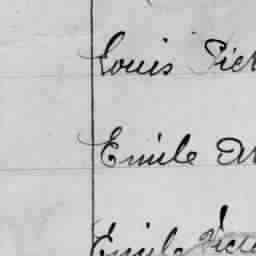 Louis Pier
Emile Ar
Emile Victo